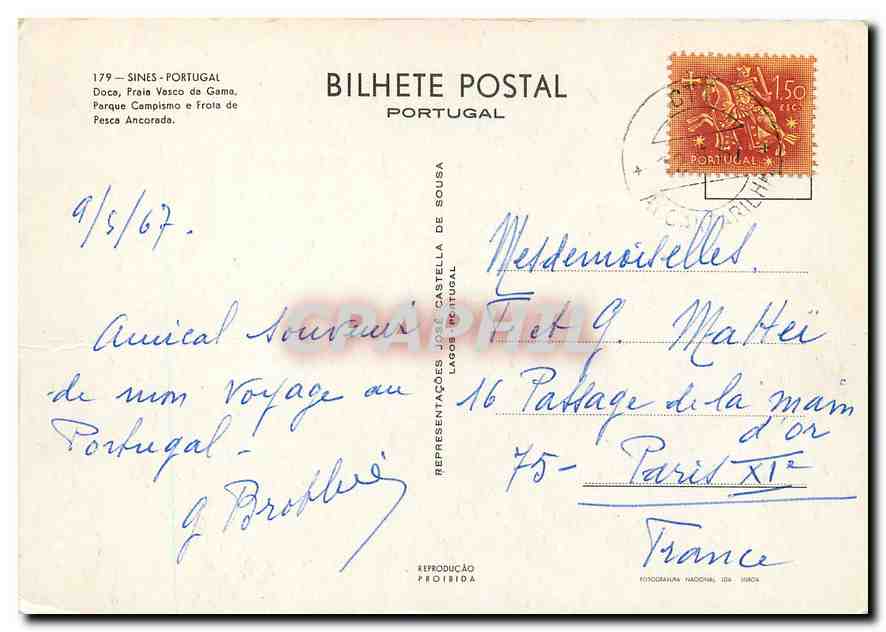 179 — SINES - PORTUGAL
Doca, Praia Vasco da Gama,
Parque Campismo e Frota de
Pesca Ancorada.
BILHETE POSTAL
PORTUGAL
1$50
ESC.
PORTUGAL
CTT
9/5/67.
Amical Souvenir
de mon voyage au
Portugal -
REPRESENTAÇÕES JOSÉ CASTELLA DE SOUSA
LAGOS - PORTUGAL
Mesdemoiselles.
F et G. Matteï
16 Passage de la main
d'or
75- Paris XIe
France
REPRODUÇÃO
PROIBIDA
FOTOGRAVURA NACIONAL, LDA LISBOA
CRAPHIL